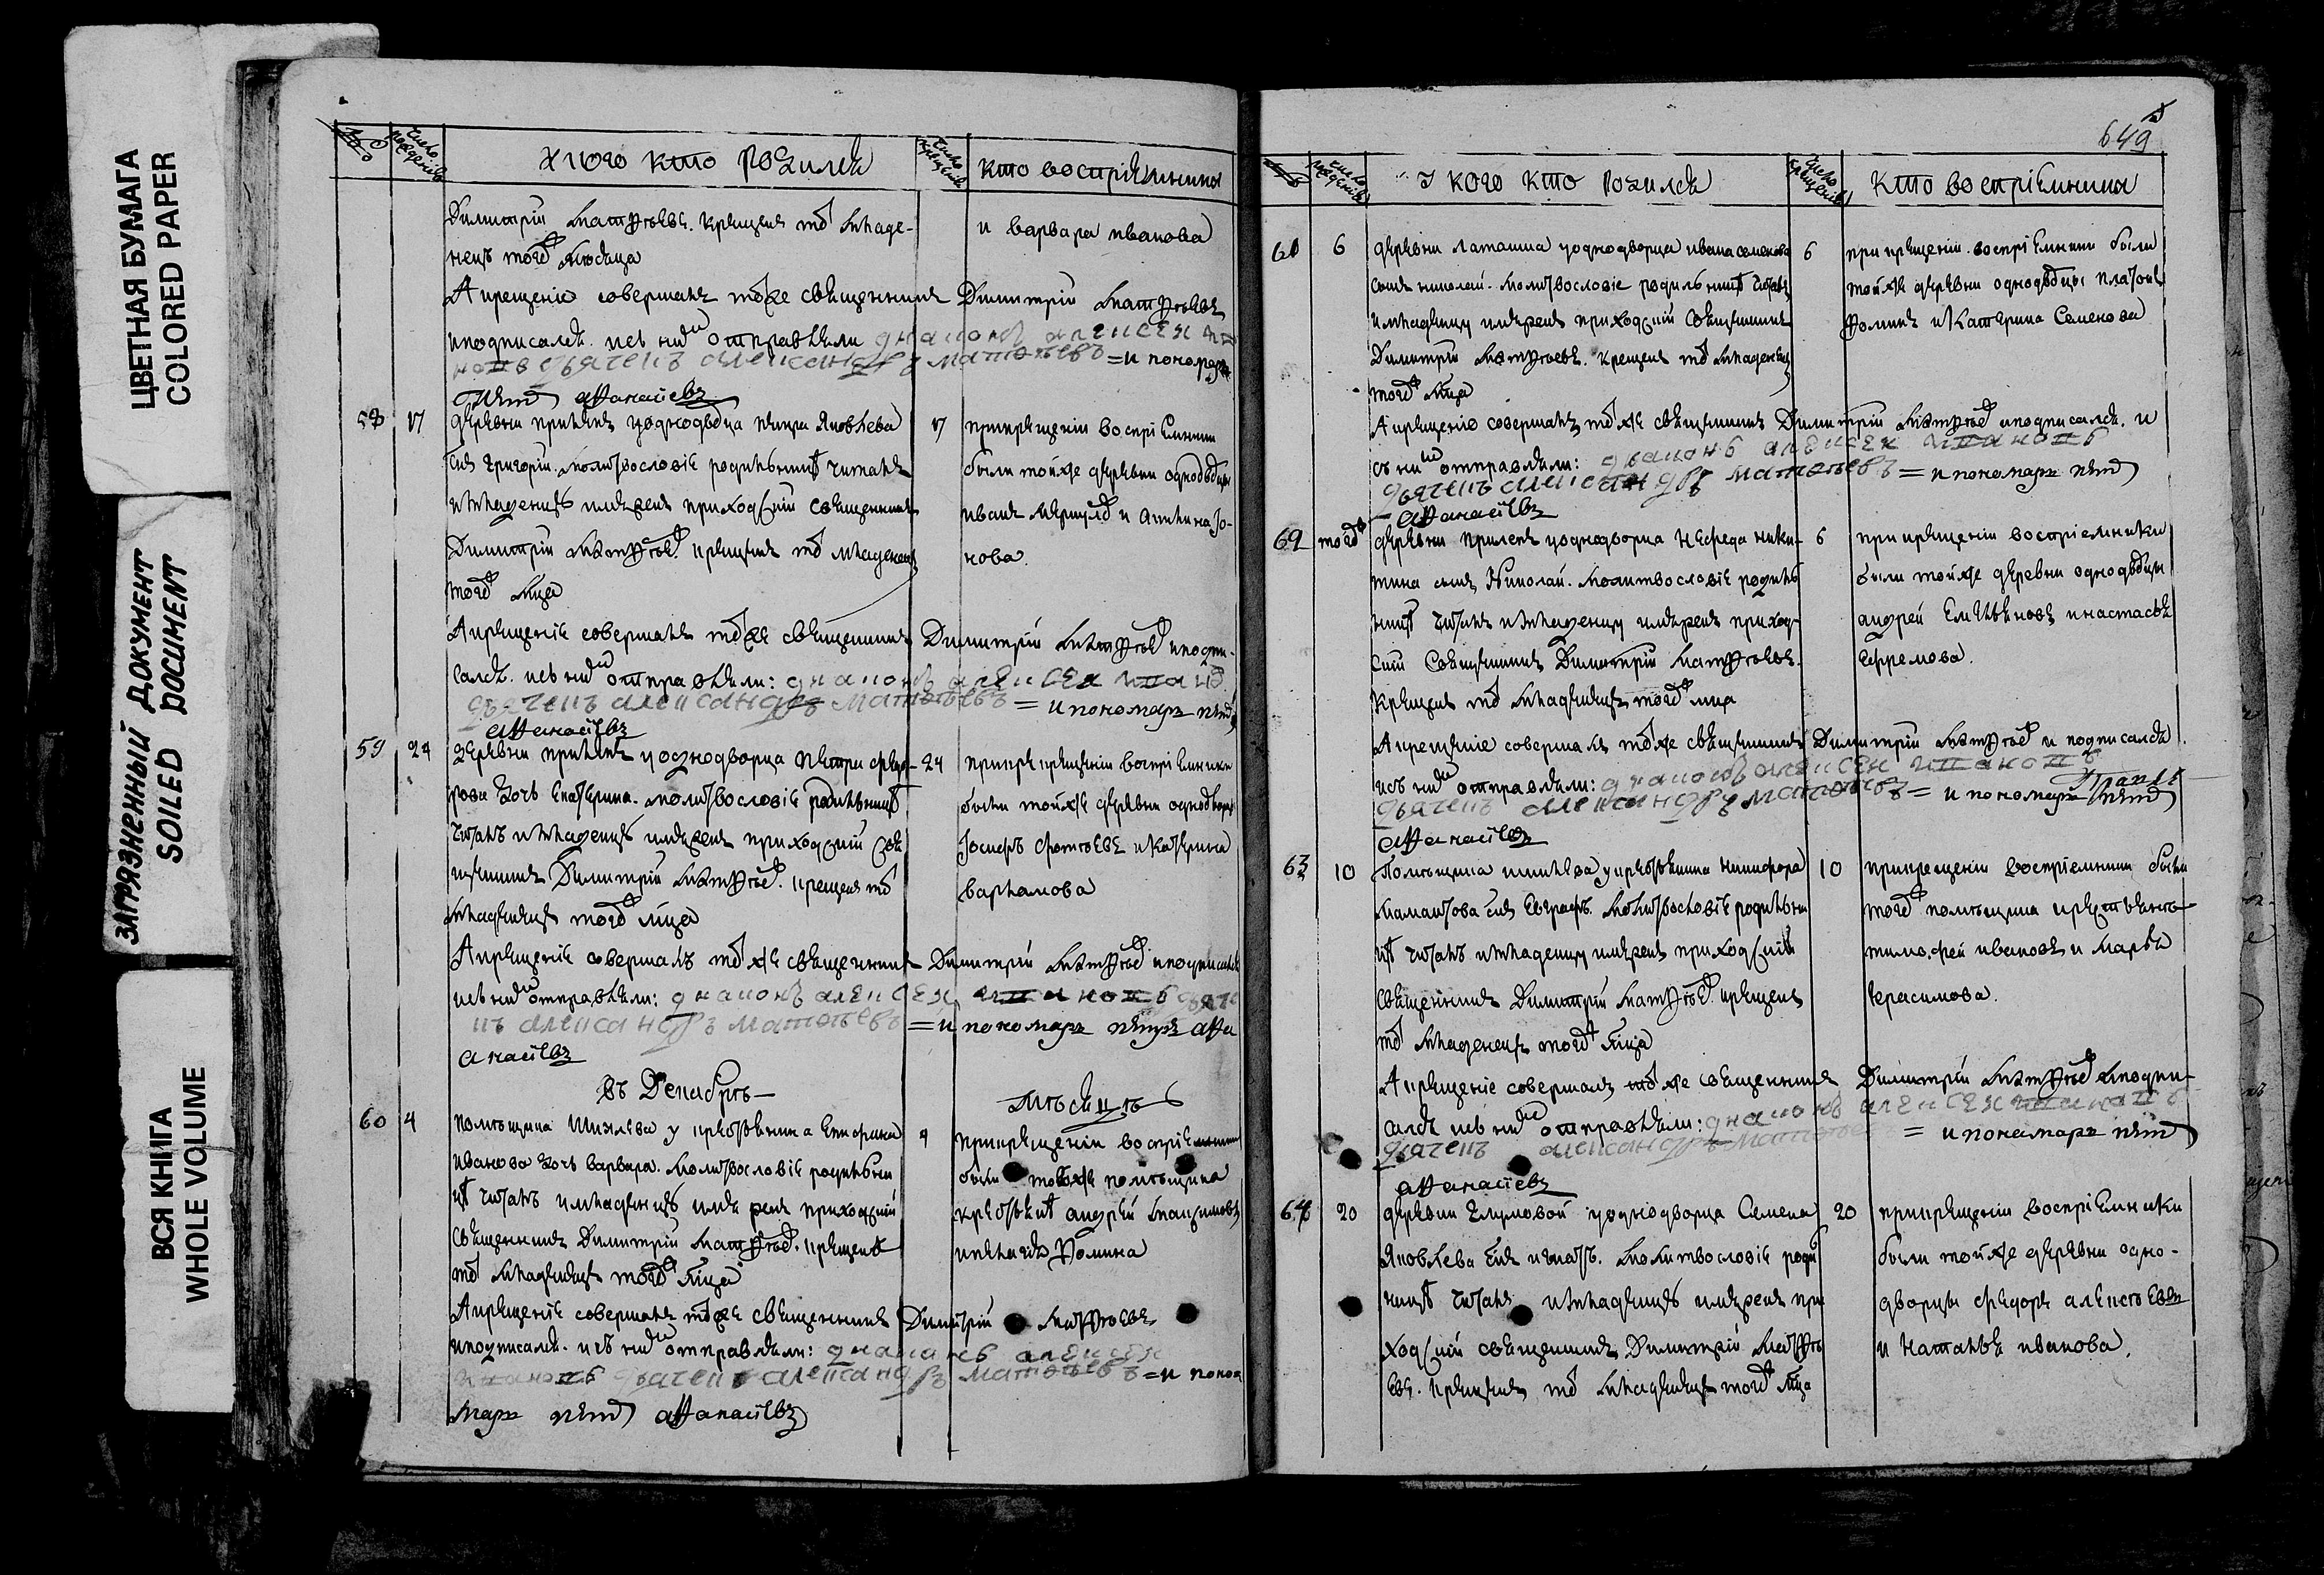 ЦВЕТНАЯ БУМАГА
COLORED PAPER
ЗАГРЯЗНЕННЫЙ ДОКУМЕНТ
SOILED DOCUMENT
ВСЯ КНИГА
WHOLE VOLUME
У кого кто родился
кто воспріемники
Димитрій Матфѣевъ. крещенъ той младе-
нецъ того мѣсяца
и варвара иванова
А крещеніе совершалъ тойже священникъ Димитрій Матфѣевъ
и подписался. и съ нимъ отправляли диаконъ алексей
дьячекъ александръ матфѣевъ = и пономарь
петръ афанасіевъ
58 17
деревни прилепъ у однодворца петра Яковлева
сынъ григорій. молитвословіе родильницѣ читалъ
и младенцу имя рекъ приходскій священникъ
Димитрій Матфѣевъ. крещенъ той младенецъ
того мѣсяца
17
при крещеніи воспріемники
были тойже деревни однодворцы
иванъ и
нова.
А крещеніе совершалъ тойже священникъ Димитрій Матфѣевъ и подпи-
сался. и съ нимъ отправляли: диаконъ алексей
дьячекъ александръ матфѣевъ = и пономарь петръ
афанасіевъ
59 24
деревни прилепъ у однодворца петра федо-
рова дочь Екатерина. молитвословіе родильницѣ
читалъ и младенцу имя рекъ приходскій свя
щенникъ Димитрій Матфѣевъ. крещенъ той
младенецъ того мѣсяца
24
при крещеніи воспріемники
были тойже деревни однодворцы
Іосифъ фотѣевъ и Катерина
варламова
А крещеніе совершалъ тойже священникъ Димитрій Матфѣевъ и подписался
и съ нимъ отправляли: диаконъ алексей
александръ матфѣевъ = и пономарь петръ афа
анасіевъ
въ Декабрѣ
мѣсяцѣ
60 4
помѣщика Шихлева у крестьянина
иванова дочь варвара. молитвословіе родильни
цѣ читалъ и младенцу имя рекъ приходскій
священникъ Димитрій Матфѣевъ. крещенъ
той младенецъ того мѣсяца
при крещеніи воспріемники
были тогоже помѣщика
андрей
Фомина
А крещеніе совершалъ тойже священникъ Димитрій Матфѣевъ
и подписался. и съ нимъ отправляли: диаконъ алексей
дьячекъ александръ матфѣевъ = и поно
марь петръ афанасіевъ
649
У кого кто родился
кто воспріемники
6
деревни Латашна у однодворца ивана семенова
сынъ николай. молитвословіе родильницѣ читалъ
и младенцу имя рекъ приходскій священникъ
Димитрій Матфѣевъ. крещенъ той младенецъ
того мѣсяца
6
при крещеніи воспріемники были
тойже деревни однодворцы платонъ
Фоминъ и Катерина Семенова
А крещеніе совершалъ тойже священникъ Димитрій Матфѣевъ и подписался. и
съ нимъ отправляли: диаконъ алексей
дьячекъ александръ матфѣевъ = и пономарь петръ
афанасіевъ
62 того
деревни прилепъ у однодворца Нефеда ники-
тина сынъ Николай. молитвословіе родиль
ницѣ читалъ и младенцу имя рекъ приход-
скій священникъ Димитрій Матфѣевъ.
крещенъ той младенецъ того мѣсяца
6
при крещеніи воспріемники
были тойже деревни однодворцы
андрей Емельяновъ и настасья
Ефремова.
А крещеніе совершалъ тойже священникъ Димитрій Матфѣевъ и подписался.
и съ нимъ отправляли: диаконъ алексей
дьячекъ александръ матфѣевъ = и пономарь петръ
афанасіевъ
63 10
Помѣщика шихлева у крестьянина никифора
мамантова сынъ Евграфъ. молитвословіе родильни
цѣ читалъ и младенцу имя рекъ приходскій
священникъ Димитрій Матфѣевъ. крещенъ
той младенецъ того мѣсяца
10
при крещеніи воспріемники были
того помѣщика крестьянъ
тимофей ивановъ и Марѳа
герасимова.
А крещеніе совершалъ тойже священникъ Димитрій Матфѣевъ и подпи-
сался и съ нимъ отправляли: диаконъ алексей
дьячекъ александръ = и пономарь петръ
афанасіевъ
64 20
деревни у однодворца Семена
Яковлева сынъ игнатъ. молитвословіе роди
ницѣ читалъ и младенцу имя рекъ при
ходскій священникъ Димитрій Матфѣ
евъ. крещенъ той младенецъ того мѣсяца
20
при крещеніи воспріемники
были тойже деревни одно-
дворцы федоръ алексѣевъ
и наталья иванова.